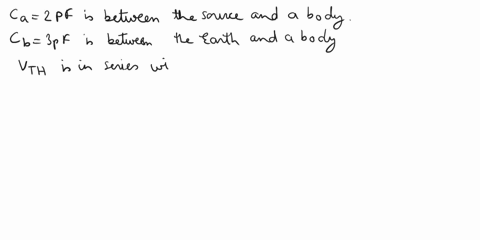 Ca = 2 PF is between the source and a body.
Cb = 3pF is between the Earth and a body
VTH is in series wi